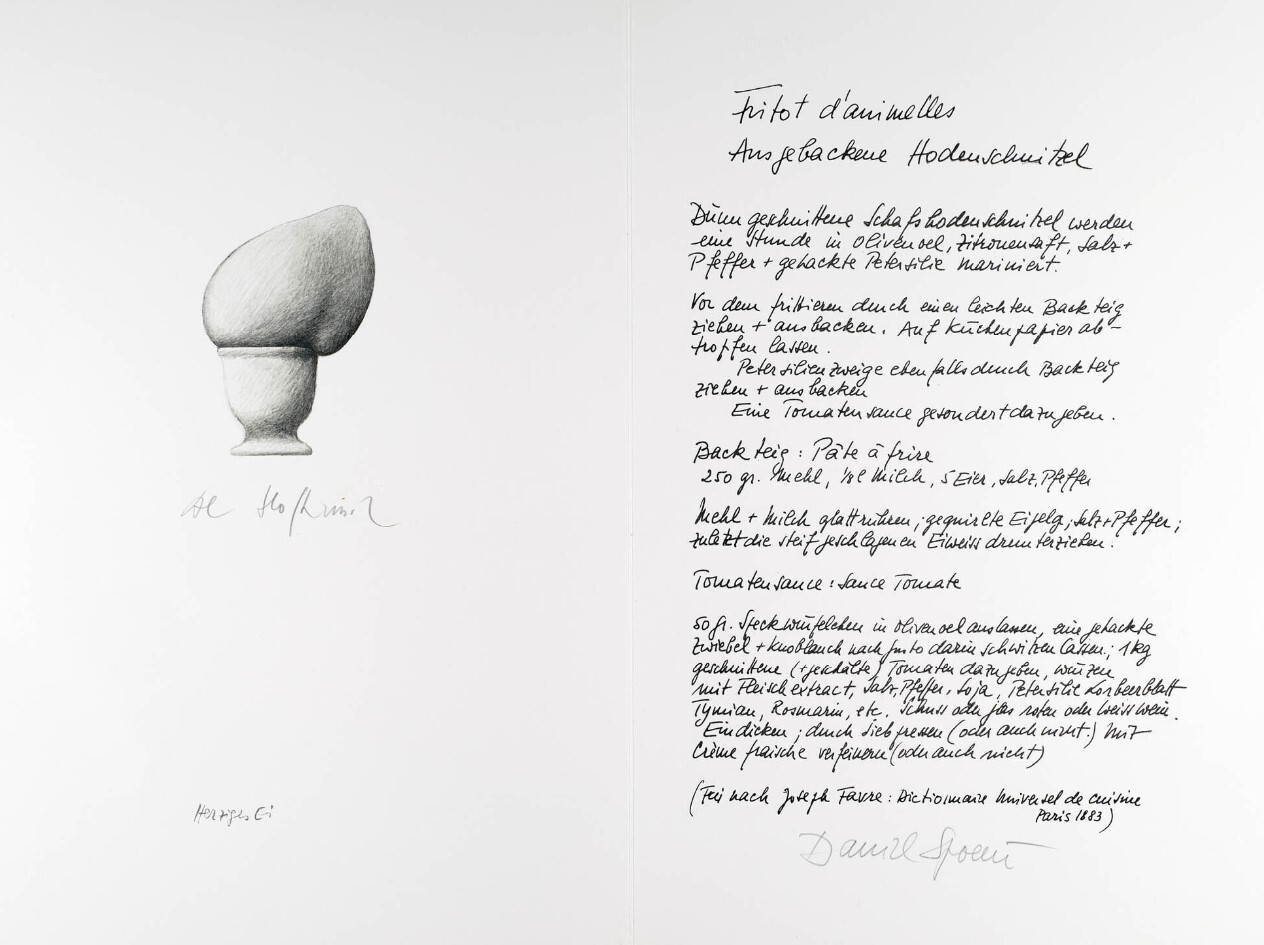 Herziges Ei
Fritot d'animelles
Ausgebackene Hodenschnitzel
Dünn geschnittene Schafshodenschnitzel werden
eine Stunde in Olivenoel, Zitronensaft, Salz +
Pfeffer + gehackte Petersilie mariniert.
Vor dem frittieren durch einen leichten Backteig
ziehen + ausbacken. Auf Küchenpapier ab-
tropfen lassen.
Petersilienzweige ebenfalls durch Backteig
ziehen + ausbacken
Eine Tomatensauce gesondert dazugeben.
Backteig: Pâte à frire
250 gr. Mehl, 1/8 l Milch, 5 Eier, Salz, Pfeffer
Mehl + Milch glattrühren; gequirlte Eigelb; Salz + Pfeffer;
zuletzt die steif geschlagenen Eiweiss drunterziehen.
Tomatensauce: Sauce Tomate
50 gr. Speckwürfelchen in Olivenoel auslassen, eine gehackte
Zwiebel + Knoblauch nach Gusto darin schwitzen lassen; 1 kg
geschnittene (+ geschälte) Tomaten dazugeben, würzen
mit Fleischextract, Salz, Pfeffer, Soja, Petersilie Lorbeerblatt
Tymian, Rosmarin, etc. Schuss oder Glas roten oder Weisswein.
Eindicken; durch Sieb pressen (oder auch nicht.) Mit
Crème fraische verfeinern (oder auch nicht)
(Frei nach Joseph Favre: Dictionnaire Universel de cuisine
Paris 1883)
Daniel Spoerri